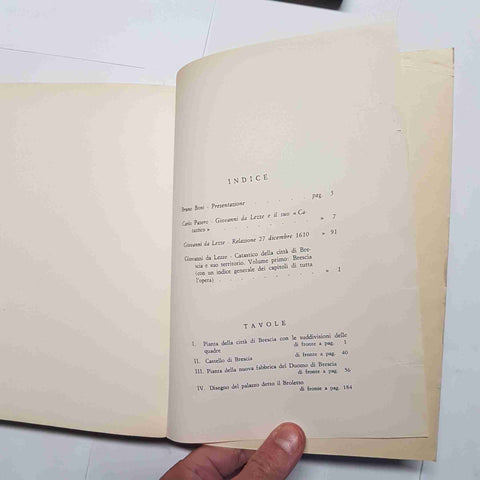 INDICE
Bruno Boni - Presentazione . . . . . . pag. 5
Carlo Pasero - Giovanni da Lezze e il suo « Ca-
tastico » . . . . . . . . . » 7
Giovanni da Lezze - Relazione 27 dicembre 1610 » 91
Giovanni da Lezze - Catastico della città di Bre-
scia e suo territorio. Volume primo: Brescia
(con un indice generale dei capitoli di tutta
l'opera) . . . . . . . . . » 1
TAVOLE
I. Pianta della città di Brescia con le suddivisioni delle
quadre di fronte a pag. 1
II. Castello di Brescia di fronte a pag. 40
III. Pianta della nuova fabbrica del Duomo di Brescia
di fronte a pag. 56
IV. Disegno del palazzo detto il Broletto
di fronte a pag. 184